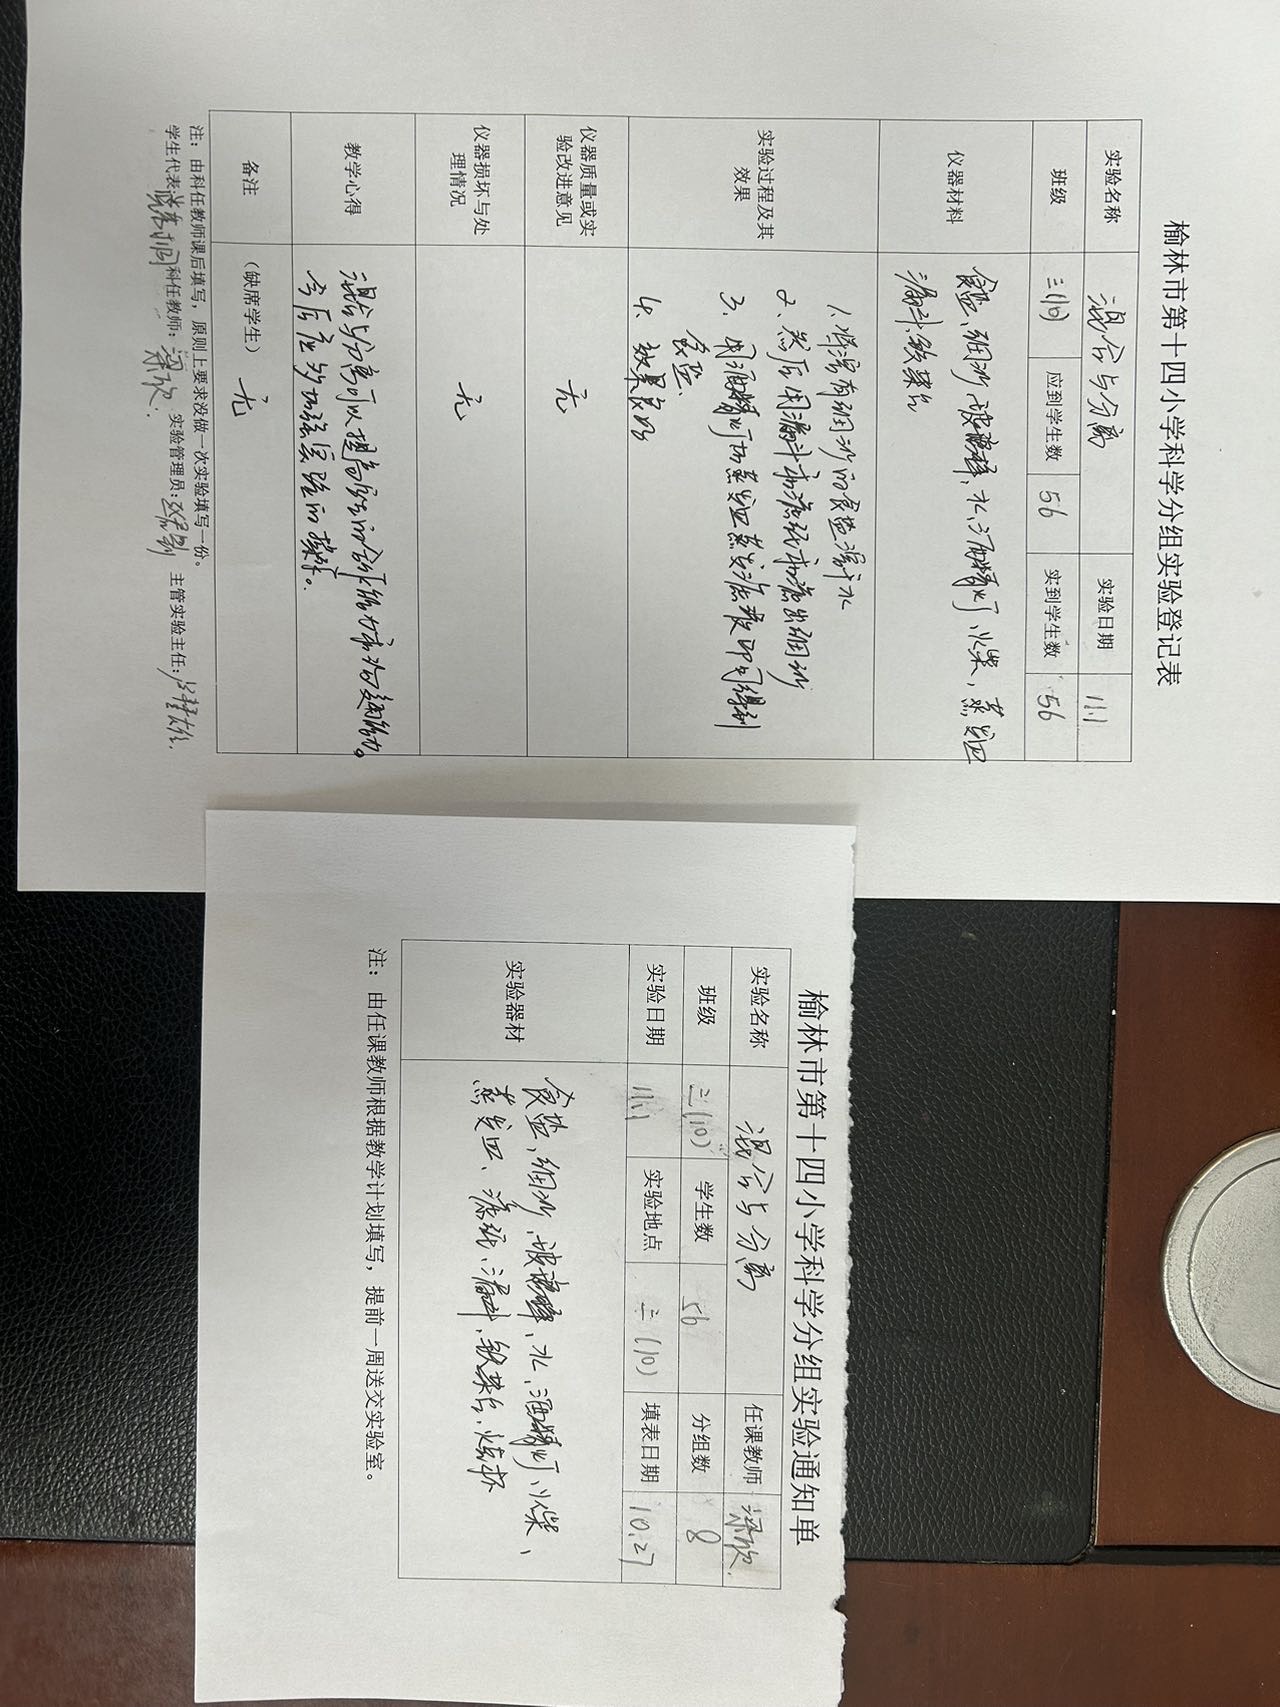 榆林市第十四小学科学分组实验登记表
实验名称 混合与分离 实验日期 11.1
班级 三(10) 应到学生数 56 实到学生数 56
仪器材料 食盐、细沙、玻璃棒、水、酒精灯、火柴、蒸发皿
漏斗、铁架台
实验过程及其效果
1、将混有细沙的食盐溶于水
2、然后用漏斗和滤纸过滤出细沙
3、用酒精灯加热蒸发皿蒸发滤液即可得到
食盐、
4、效果良好
仪器质量或实验改进意见 无
仪器损坏与处理情况 无
教学心得 混合与分离可以提高学生的合作能力和沟通能力。
今后应多加强实验的操作。
备注 (缺席学生) 无
注：由科任教师课后填写，原则上要求没做一次实验填写一份。
学生代表 科任教师： 梁欢 实验管理员： 主管实验主任：
榆林市第十四小学科学分组实验通知单
实验名称 混合与分离 任课教师 梁欢
班级 三(10) 学生数 56 分组数 8
实验日期 11.1 实验地点 三(10) 填表日期 10.27
实验器材 食盐、细沙、玻璃棒、水、酒精灯、火柴、
蒸发皿、滤纸、漏斗、铁架台、烧杯
注：由任课教师根据教学计划填写，提前一周送交实验室。